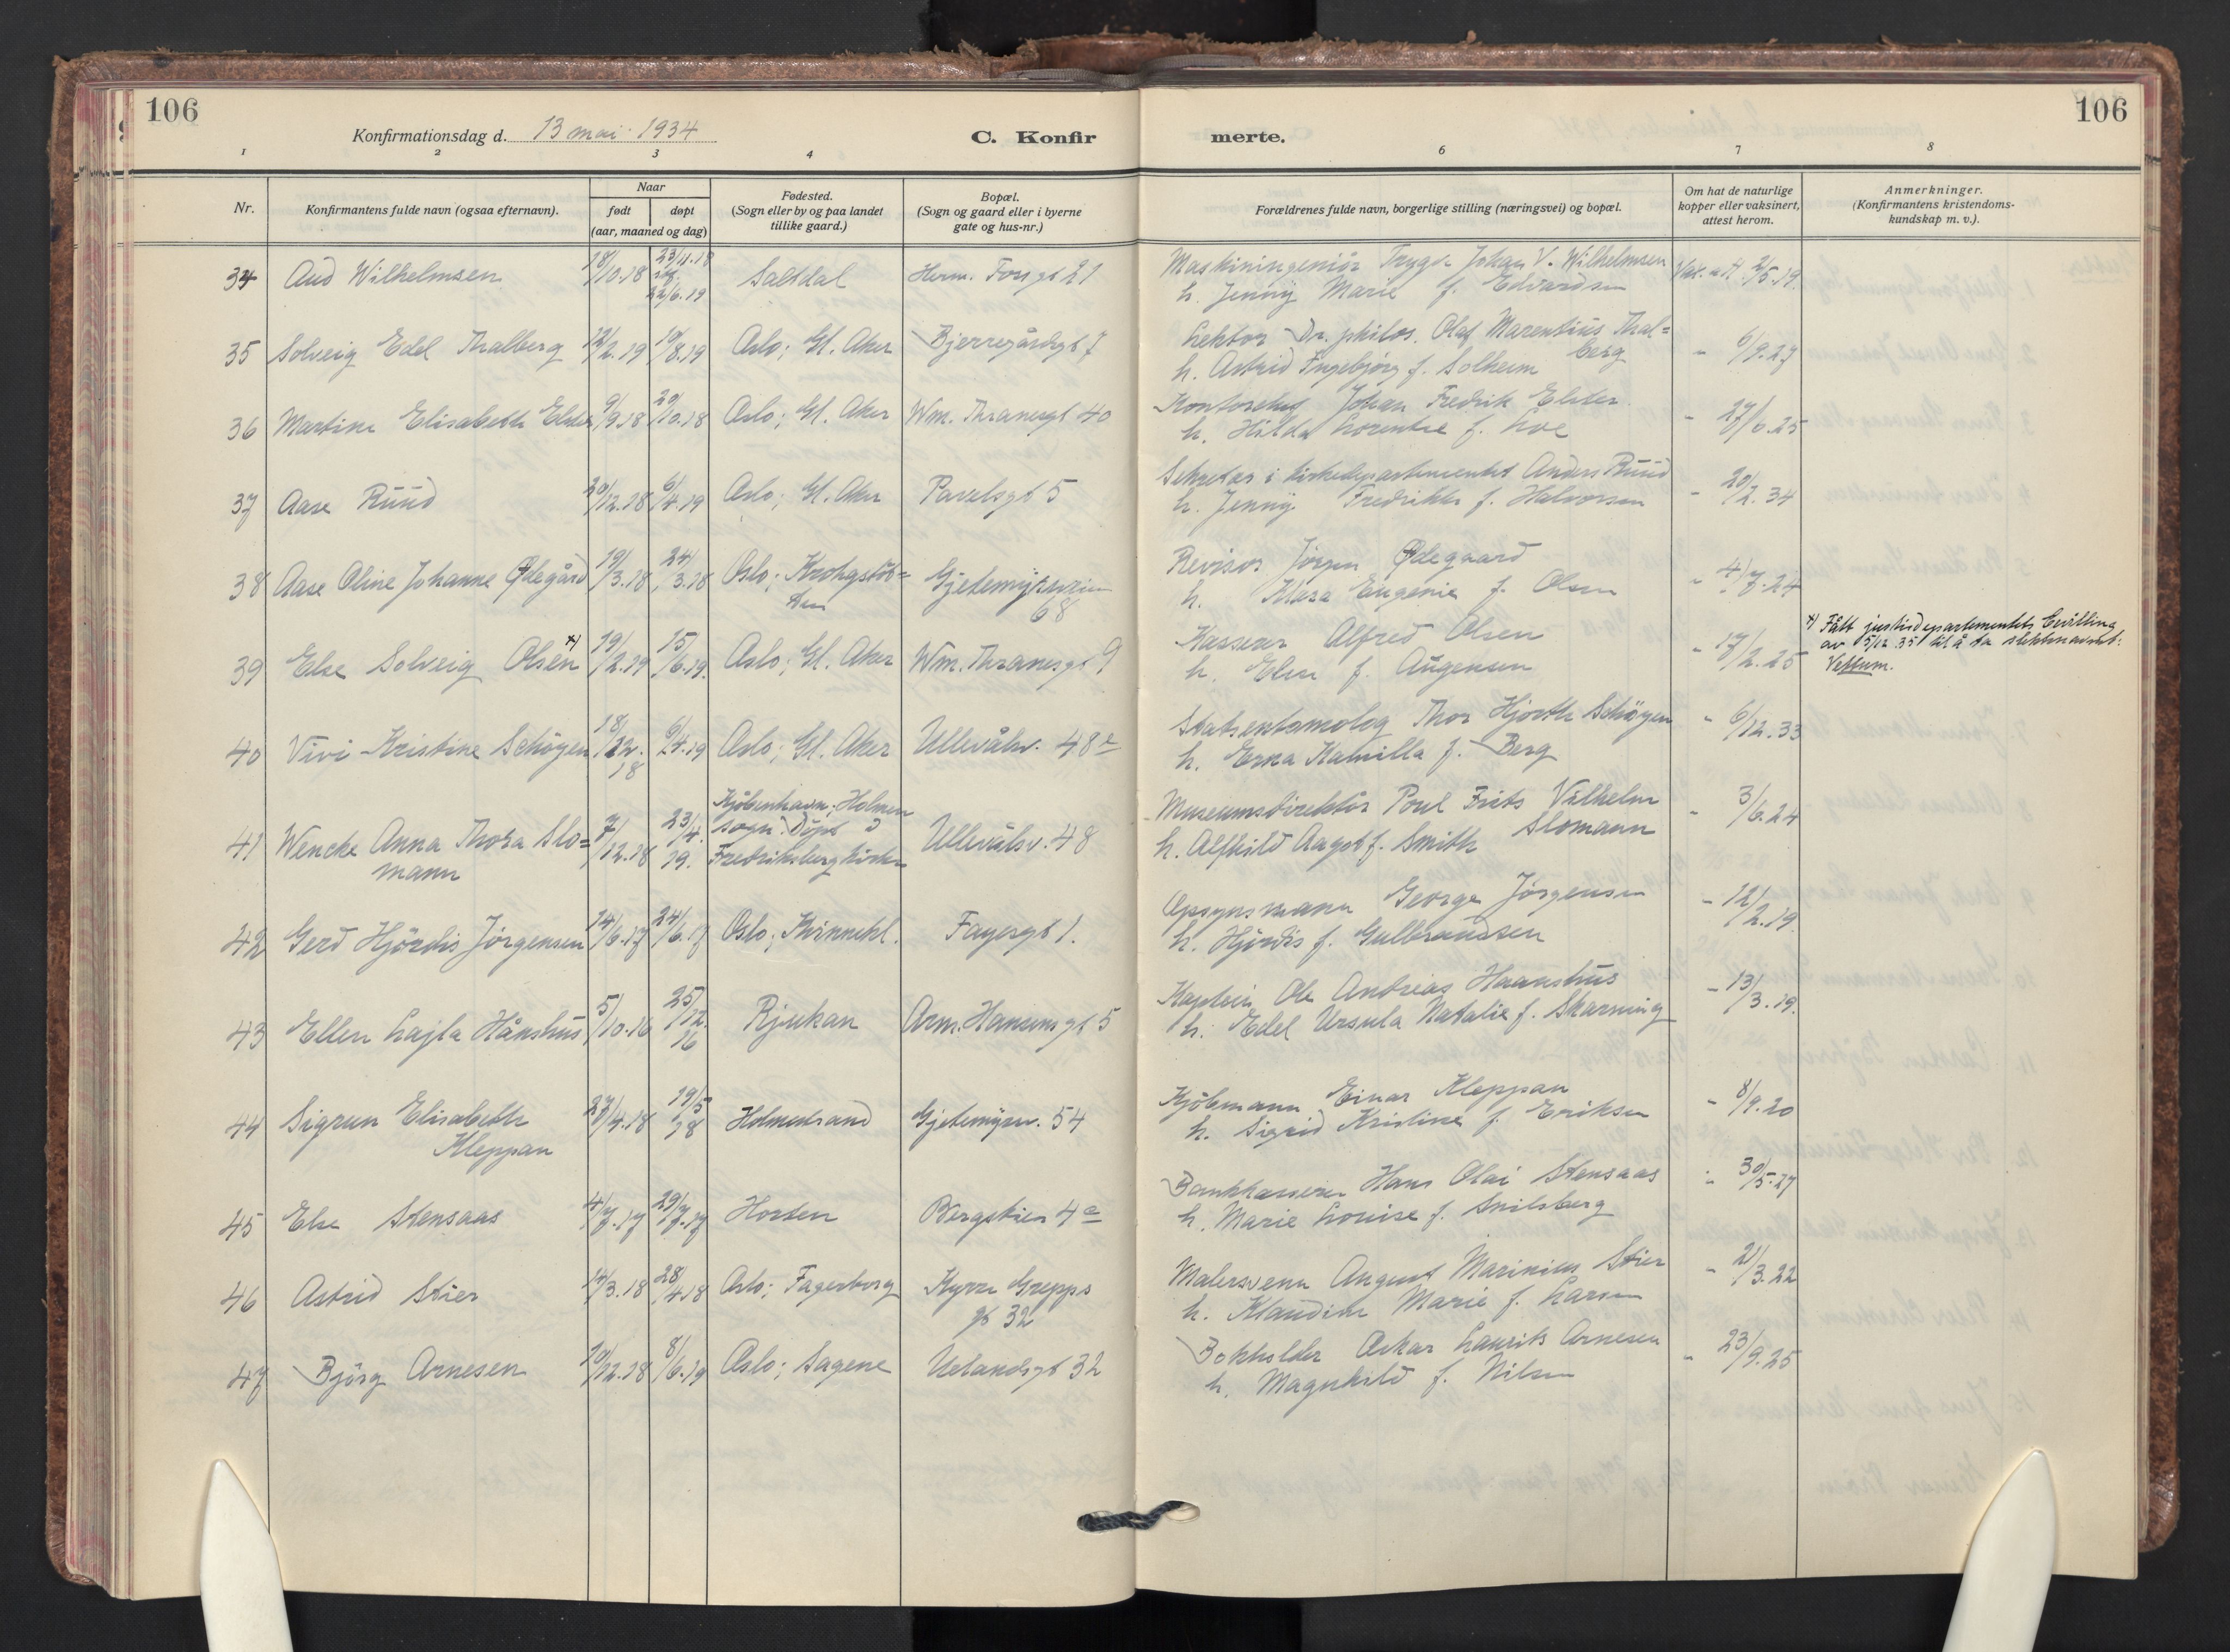 106
106
Konfirmationsdag d. 13 mai 1934
C. Konfir
merte.
1 2 3 4 6 7 8
Nr.
Konfirmantens fulde navn (ogsaa efternavn).
Naar
født døpt
(aar, maaned og dag)
Fødested.
(Sogn eller by og paa landet
tillike gaard.)
Bopæl.
(Sogn og gaard eller i byerne
gate og hus-nr.)
Forældrenes fulde navn, borgerlige stilling (næringsvei) og bopæl.
Om hat de naturlige
kopper eller vaksinert,
attest herom.
Anmerkninger.
(Konfirmantens kristendoms-
kundskap m. v.).
34 Aud Wilhelmsen 18/10.18 23/11.18 22/6.19 Saltdal Herm. Fossgt 21
Maskiningeniör Trygve Johan V. Wilhelmsen
h. Jenny Marie f. Edvardsen
Vak. att. 2/5.19.
35 Solveig Edel Thalberg 12/2.19 10/8.19 Oslo; Gl. Aker Bjerregårdsgt 7
Lektor Dr. philos. Olaf Marentius Thal=
berg
h. Astrid Ingebjörg f. Solheim
- 6/9.27
36 Martine Elisabeth Elster 9/9.18 20/10.18 Oslo; Gl. Aker Wm. Thranesgt 40
Kontorchef Johan Fredrik Elster.
h. Hilda Lorentse f. Loe
- 27/6.25
37 Aase Ruud 20/12.18 6/4.19 Oslo; Gl. Aker Pavelsgt 5
Sekretær i kirkedepartementet Anders Ruud
h. Jenny Fredrikke f. Halvorsen
- 20/2.34
38 Aase Oline Johanne Ødegård 19/3.18 24/3.18 Oslo; Krohgstöt=
ten
Gjetemyrsveien
68
Revisor Jörgen Ødegaard
h. Klara Eugenie f. Olsen
- 4/7.24
39 Else Solveig Olsen x) 19/2.19 15/6.19. Oslo; Gl. Aker Wm. Thranesgt 9
Kasserer Alfred Olsen
h. Elise f. Augensen
- 17/2.25
x) Fått justisdepartementets bevilling
av 5/12 35 til å ta slektsnavnet:
Vettum.
40 Vivi-Kristine Schöyen 18/12.18 6/4.19 Oslo; Gl. Aker Ullevålsv. 48
Statsentomolog Thor Hjorth Schöyen
h. Erna Kamilla f. Berg
- 6/12.33
41 Wencke Anna Thora Slo=
mann
7/12.18 23/4.19.
Kjöbenhavn; Holmen
sogn. Döpt i
Fredriksberg kirke
Ullevålsv. 48
Museumsdirektör Poul Frits Vilhelm
Slomann
h. Alfhild Aagot f. Smith
- 3/6.24
42 Gerd Hjördis Jörgensen 14/6.17 24/6.17 Oslo; Kvinnekl. Fayesgt 1.
Opsynsmann George Jörgensen
h. Hjördis f. Gulbrandsen
- 12/2.19.
43 Ellen Lajla Hånshus 5/10.16 25/12.16 Rjukan Arm. Hansensgt 5
Kaptein Ole Andreas Haanshus
h. Edel Ursula Natalie f. Skarning
- 13/3.19.
44 Sigrun Elisabeth
Kleppan
27/4.18 19/5 18 Holmestrand Gjetemyrsv. 54
Kjöbmann Einar Kleppan
h. Sigrid Kristine f. Eriksen
- 8/9.20
45 Else Stensaas 4/7.17 29/7.17 Horten Bergstien 4 a
Bankkasserer Hans Olai Stensaas
h. Marie Louise f. Snilsberg
- 30/5.27
46 Astrid Stier 14/3.18 28/4.18 Oslo; Fagerborg Kyrre Grepps
gt 32
Malersvenn August Marinius Stier
h. Klaudine Marie f. Larsen
- 21/3.22
47 Björg Arnesen 10/12.18 8/6.19 Oslo; Sagene Uelandsgt 32
Bokholder Oskar Laurits Arnesen
h. Magnhild f. Nilsen
- 23/9.25